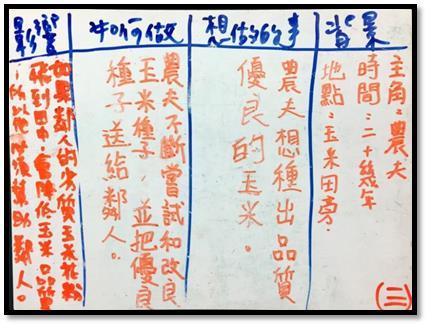 背景
主角：農夫
時間：二十幾年
地點：玉米田旁。
(二)
想做的事
農夫想種出品質
優良的玉米。
如何做
農夫不斷嘗試和改良
玉米種子，並把優良
種子送給鄰人。
影響
如果鄰人的劣質玉米花粉
飛到田中，會降低玉米品質
，所以他必須幫助鄰人。